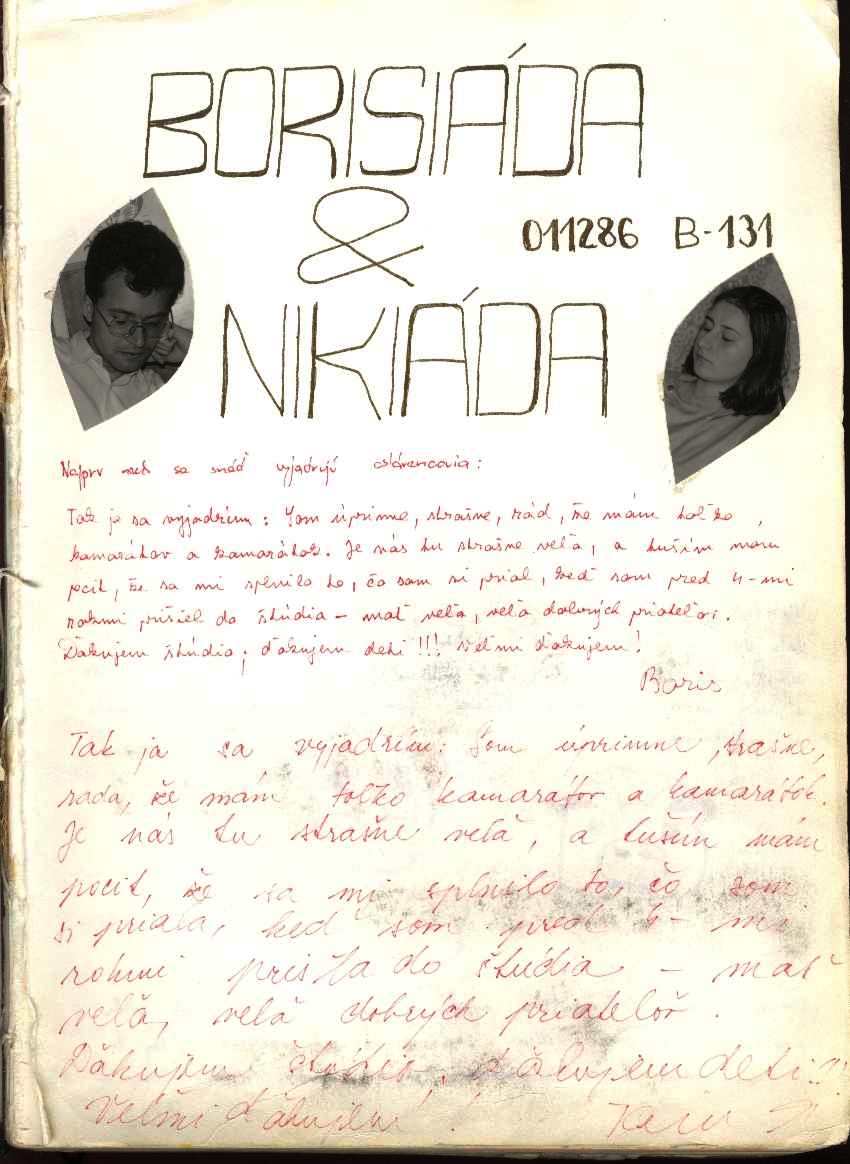 BORISIÁDA
&
011286 B-131
NIKIÁDA
Najprv nech sa snáď vyjadrujú oslávencovia:
Tak ja sa vyjadrím: Som úprimne, strašne, rád, že mám toľko,
kamarátov a kamarátok. Je nás tu strašne veľa, a tuším mám
pocit, že sa mi splnilo to, čo som si prial, keď som pred 4-mi
rokmi prišiel do štúdia - mať veľa, veľa dobrých priateľov.
Ďakujem štúdio, ďakujem deti!!! Veľmi ďakujem!
Boris
Tak ja sa vyjadrím: Som úprimne, strašne,
rada, že mám toľko kamarátov a kamarátok.
Je nás tu strašne veľa, a tuším mám
pocit, že sa mi splnilo to, čo som
si priala, keď som pred 4-mi
rokmi prišla do štúdia - mať
veľa, veľa dobrých priateľov.
Ďakujem štúdio, ďakujem deti!!!
Veľmi ďakujem!